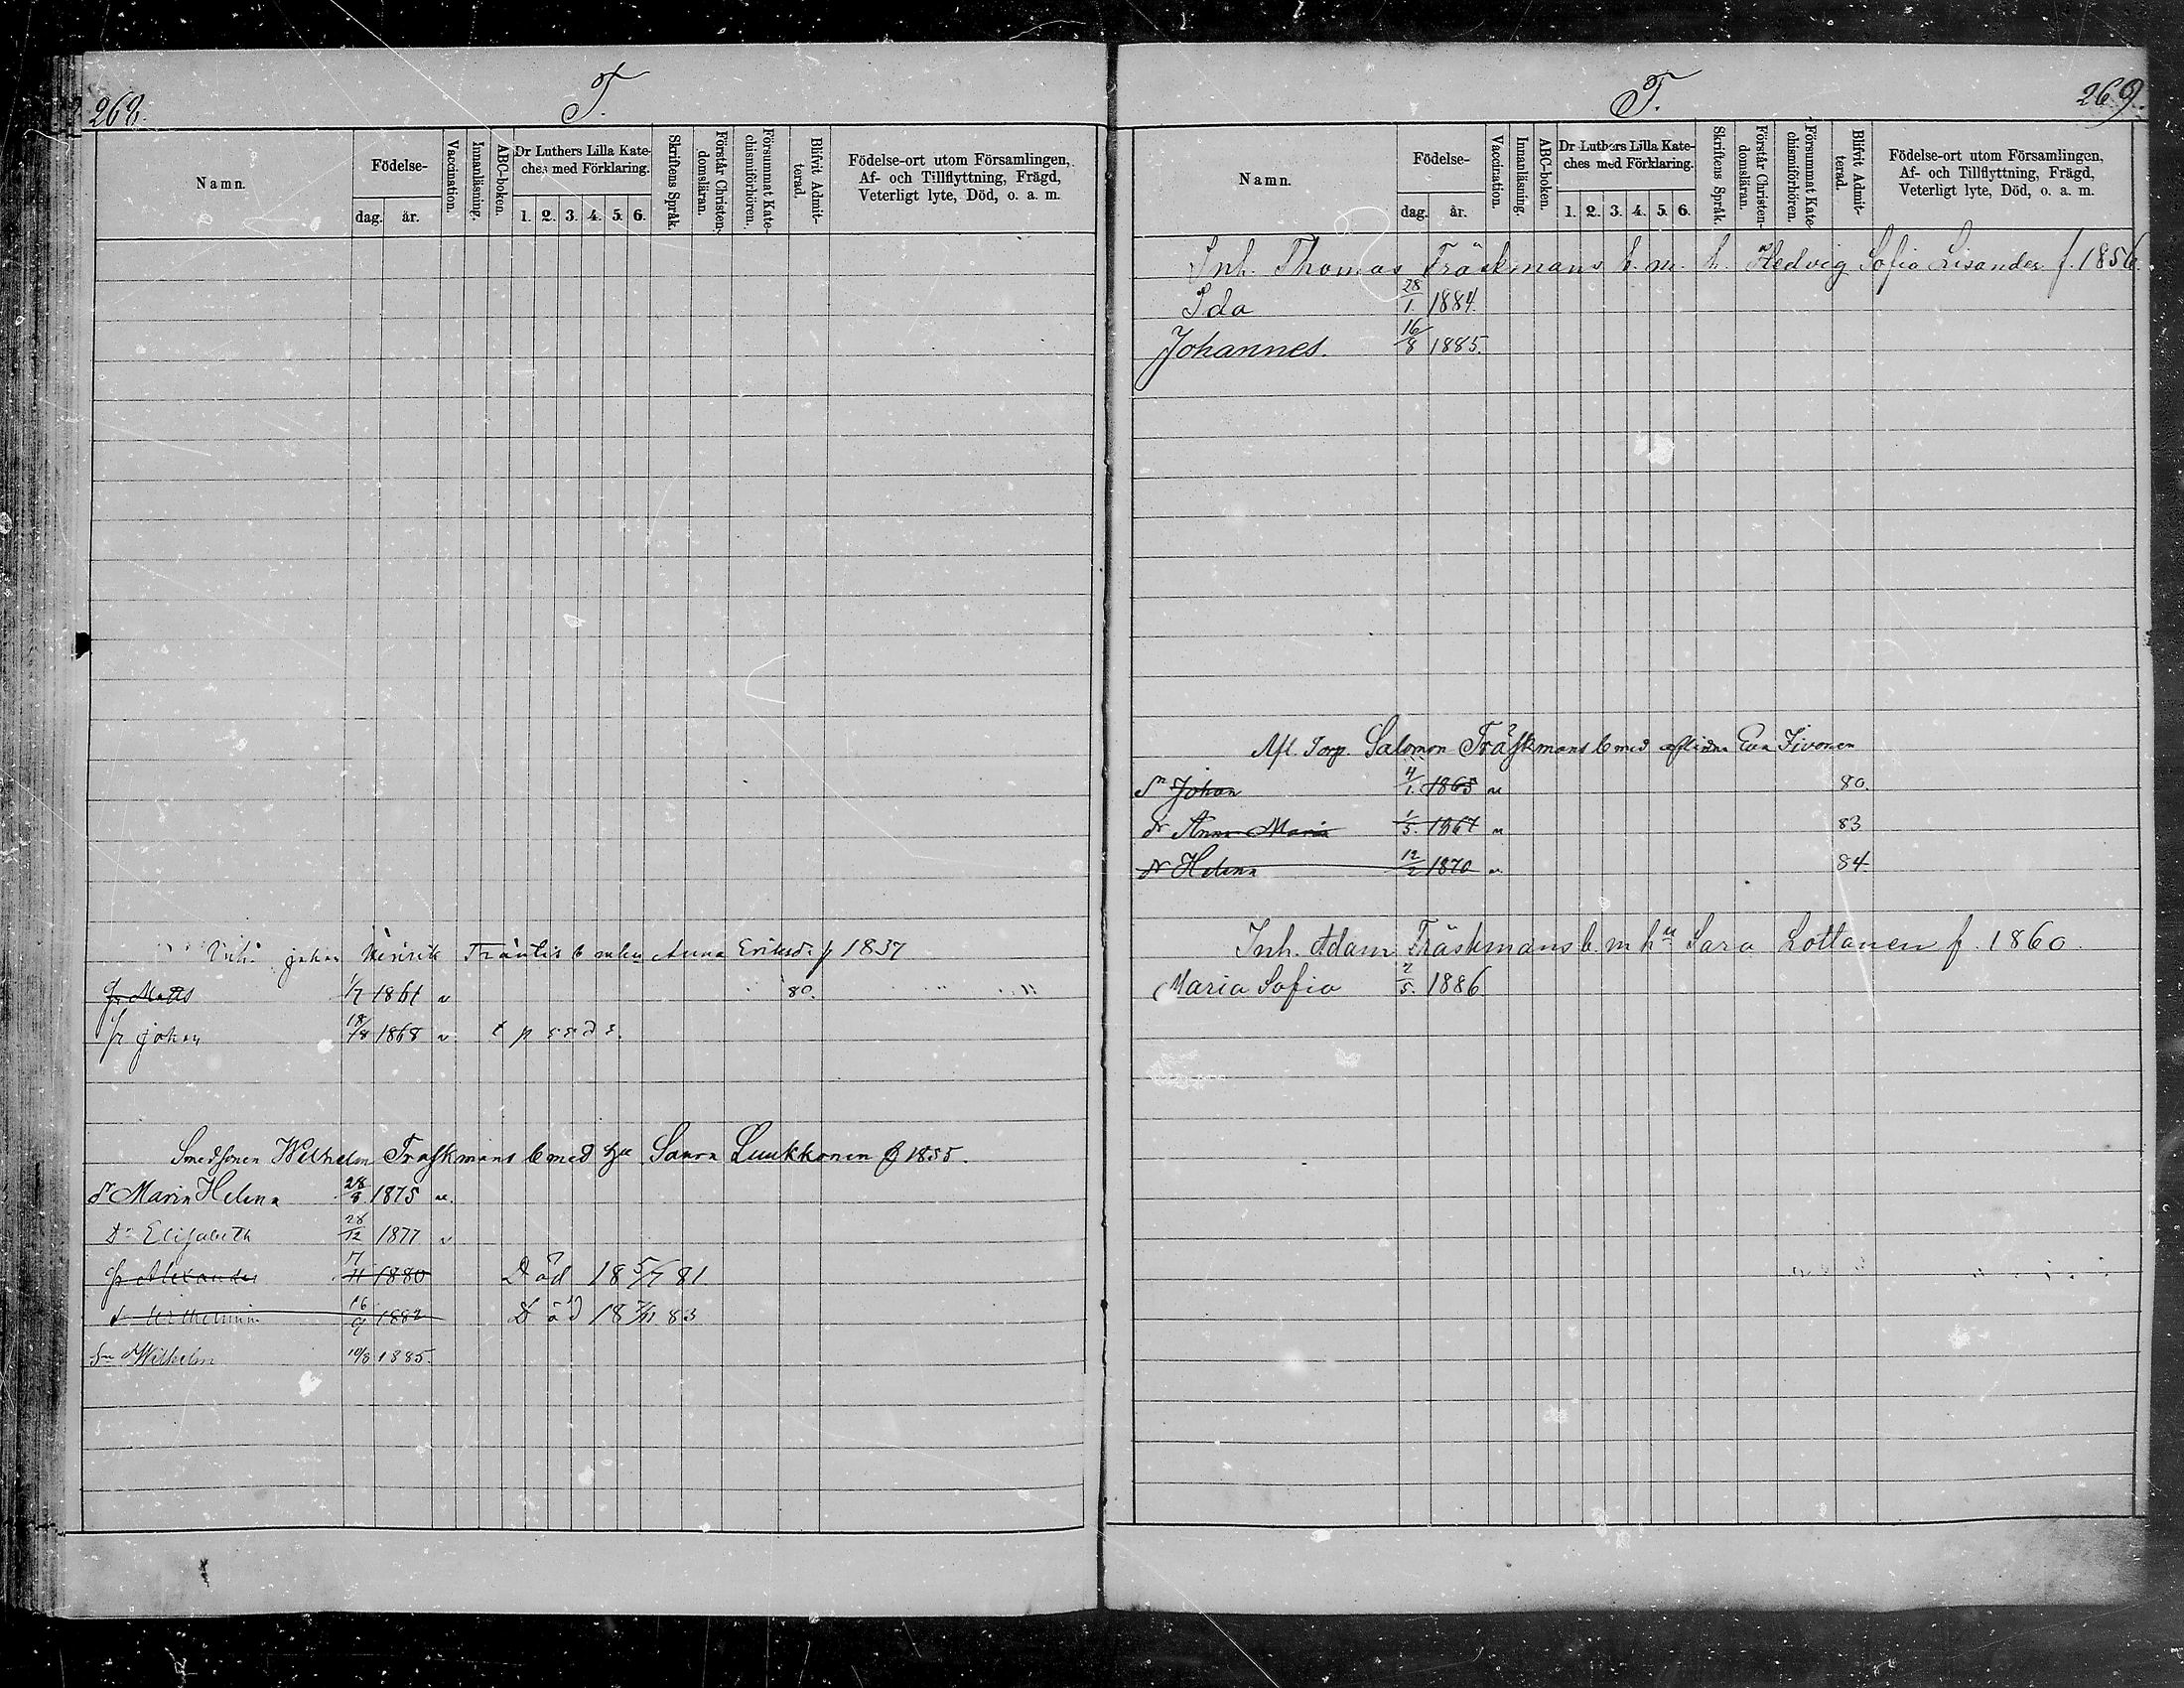 268.
T.
Namn.
Födelse-
dag. år.
Vaccination.
Innanläsning.
ABC-boken.
Dr Luthers Lilla Kate-
ches med Förklaring.
1. 2. 3. 4. 5. 6.
Skriftens Språk.
Förstår Christen-
domsläran.
Försummat Kate-
chismiförhören.
Blifvit Admit-
terad.
Födelse-ort utom Församlingen,
Af- och Tillflyttning, Frägd,
Veterligt lyte, Död, o. a. m.
Johan Henrik b Anna Eriksd: f 1837
Matts 1/7 1861 v 80.
johan 18/8 1868 v
Smedsonen Wilhelm Traskmans b med hu Saara Luukkonen f 1855.
Dr Maria Helena 28/8 1875 v.
Dr Elisabeth 28/12 1877 v
Alexander 7/11 1880 Död 18 5/7 81
Wilhelmina 16/9 1882 Död 18 7/11 83
Sn Wilhelm 10/8 1885.
T.
269.
Namn.
Födelse-
dag. år.
Vaccination.
Innanläsning.
ABC-boken.
Dr Luthers Lilla Kate-
ches med Förklaring.
1. 2. 3. 4. 5. 6.
Skriftens Språk.
Förstår Christen-
domsläran.
Försummat Kate-
chismiförhören.
Blifvit Admit-
terad.
Födelse-ort utom Församlingen,
Af- och Tillflyttning, Frägd,
Veterligt lyte, Död, o. a. m.
Inh. Thomas Träskmans b. m. h. Hedvig Sofia Lisander f. 1856.
Ida 28/1 1884.
Johannes. 16/8 1885.
Afl. Torp. Salomon Träskmans b med aflidna Eva Iivonen
Sn Johan 4/1 1865 v 80.
dr Anna Maria 1/5. 1867 v 83
dr Helena 12/2 1870 v 84.
Inh. Adam Träskmans b. m hu Sara Lottanen f. 1860.
Maria Sofia 2/5. 1886